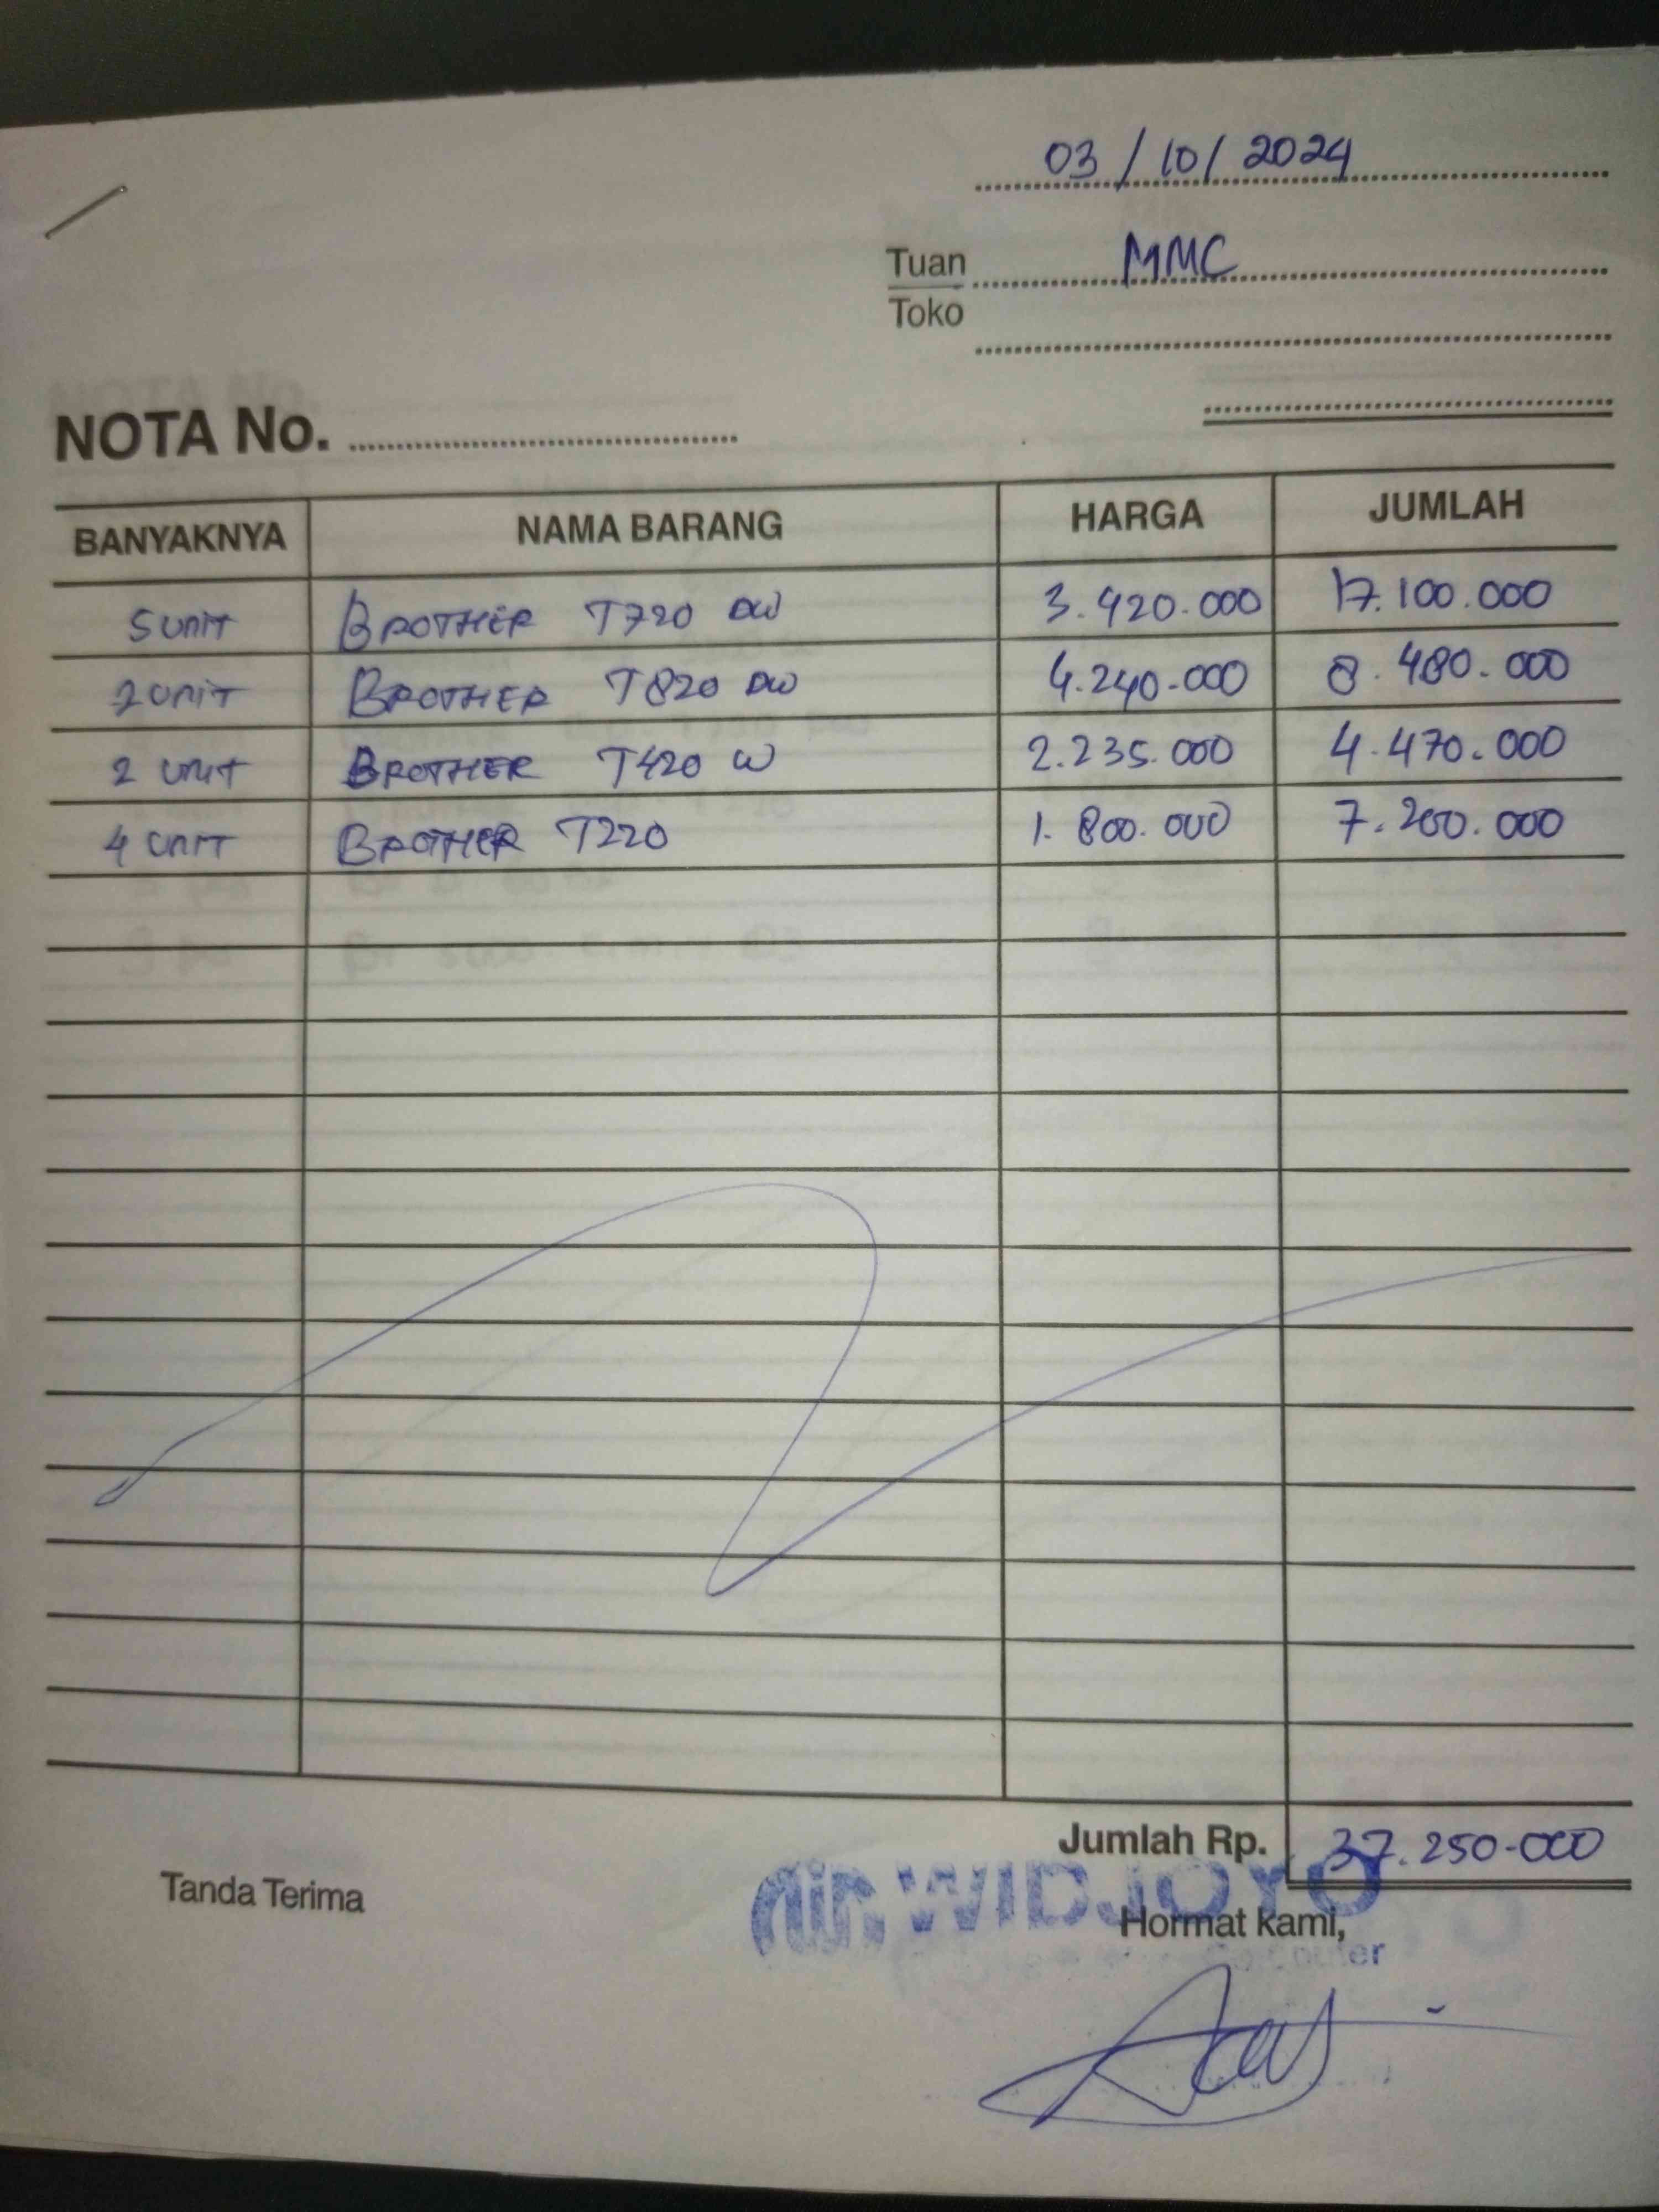 03 / 10 / 2024
Tuan MMC
Toko
NOTA No.
BANYAKNYA NAMA BARANG HARGA JUMLAH
5 UNIT BROTHER T720 DW 3.420.000 17.100.000
2 UNIT BROTHER T820 DW 4.240.000 8.480.000
2 UNIT BROTHER T420 W 2.235.000 4.470.000
4 UNIT BROTHER T220 1.800.000 7.200.000
Jumlah Rp. 37.250.000
Tanda Terima
WIDJOYO
Hormat kami,